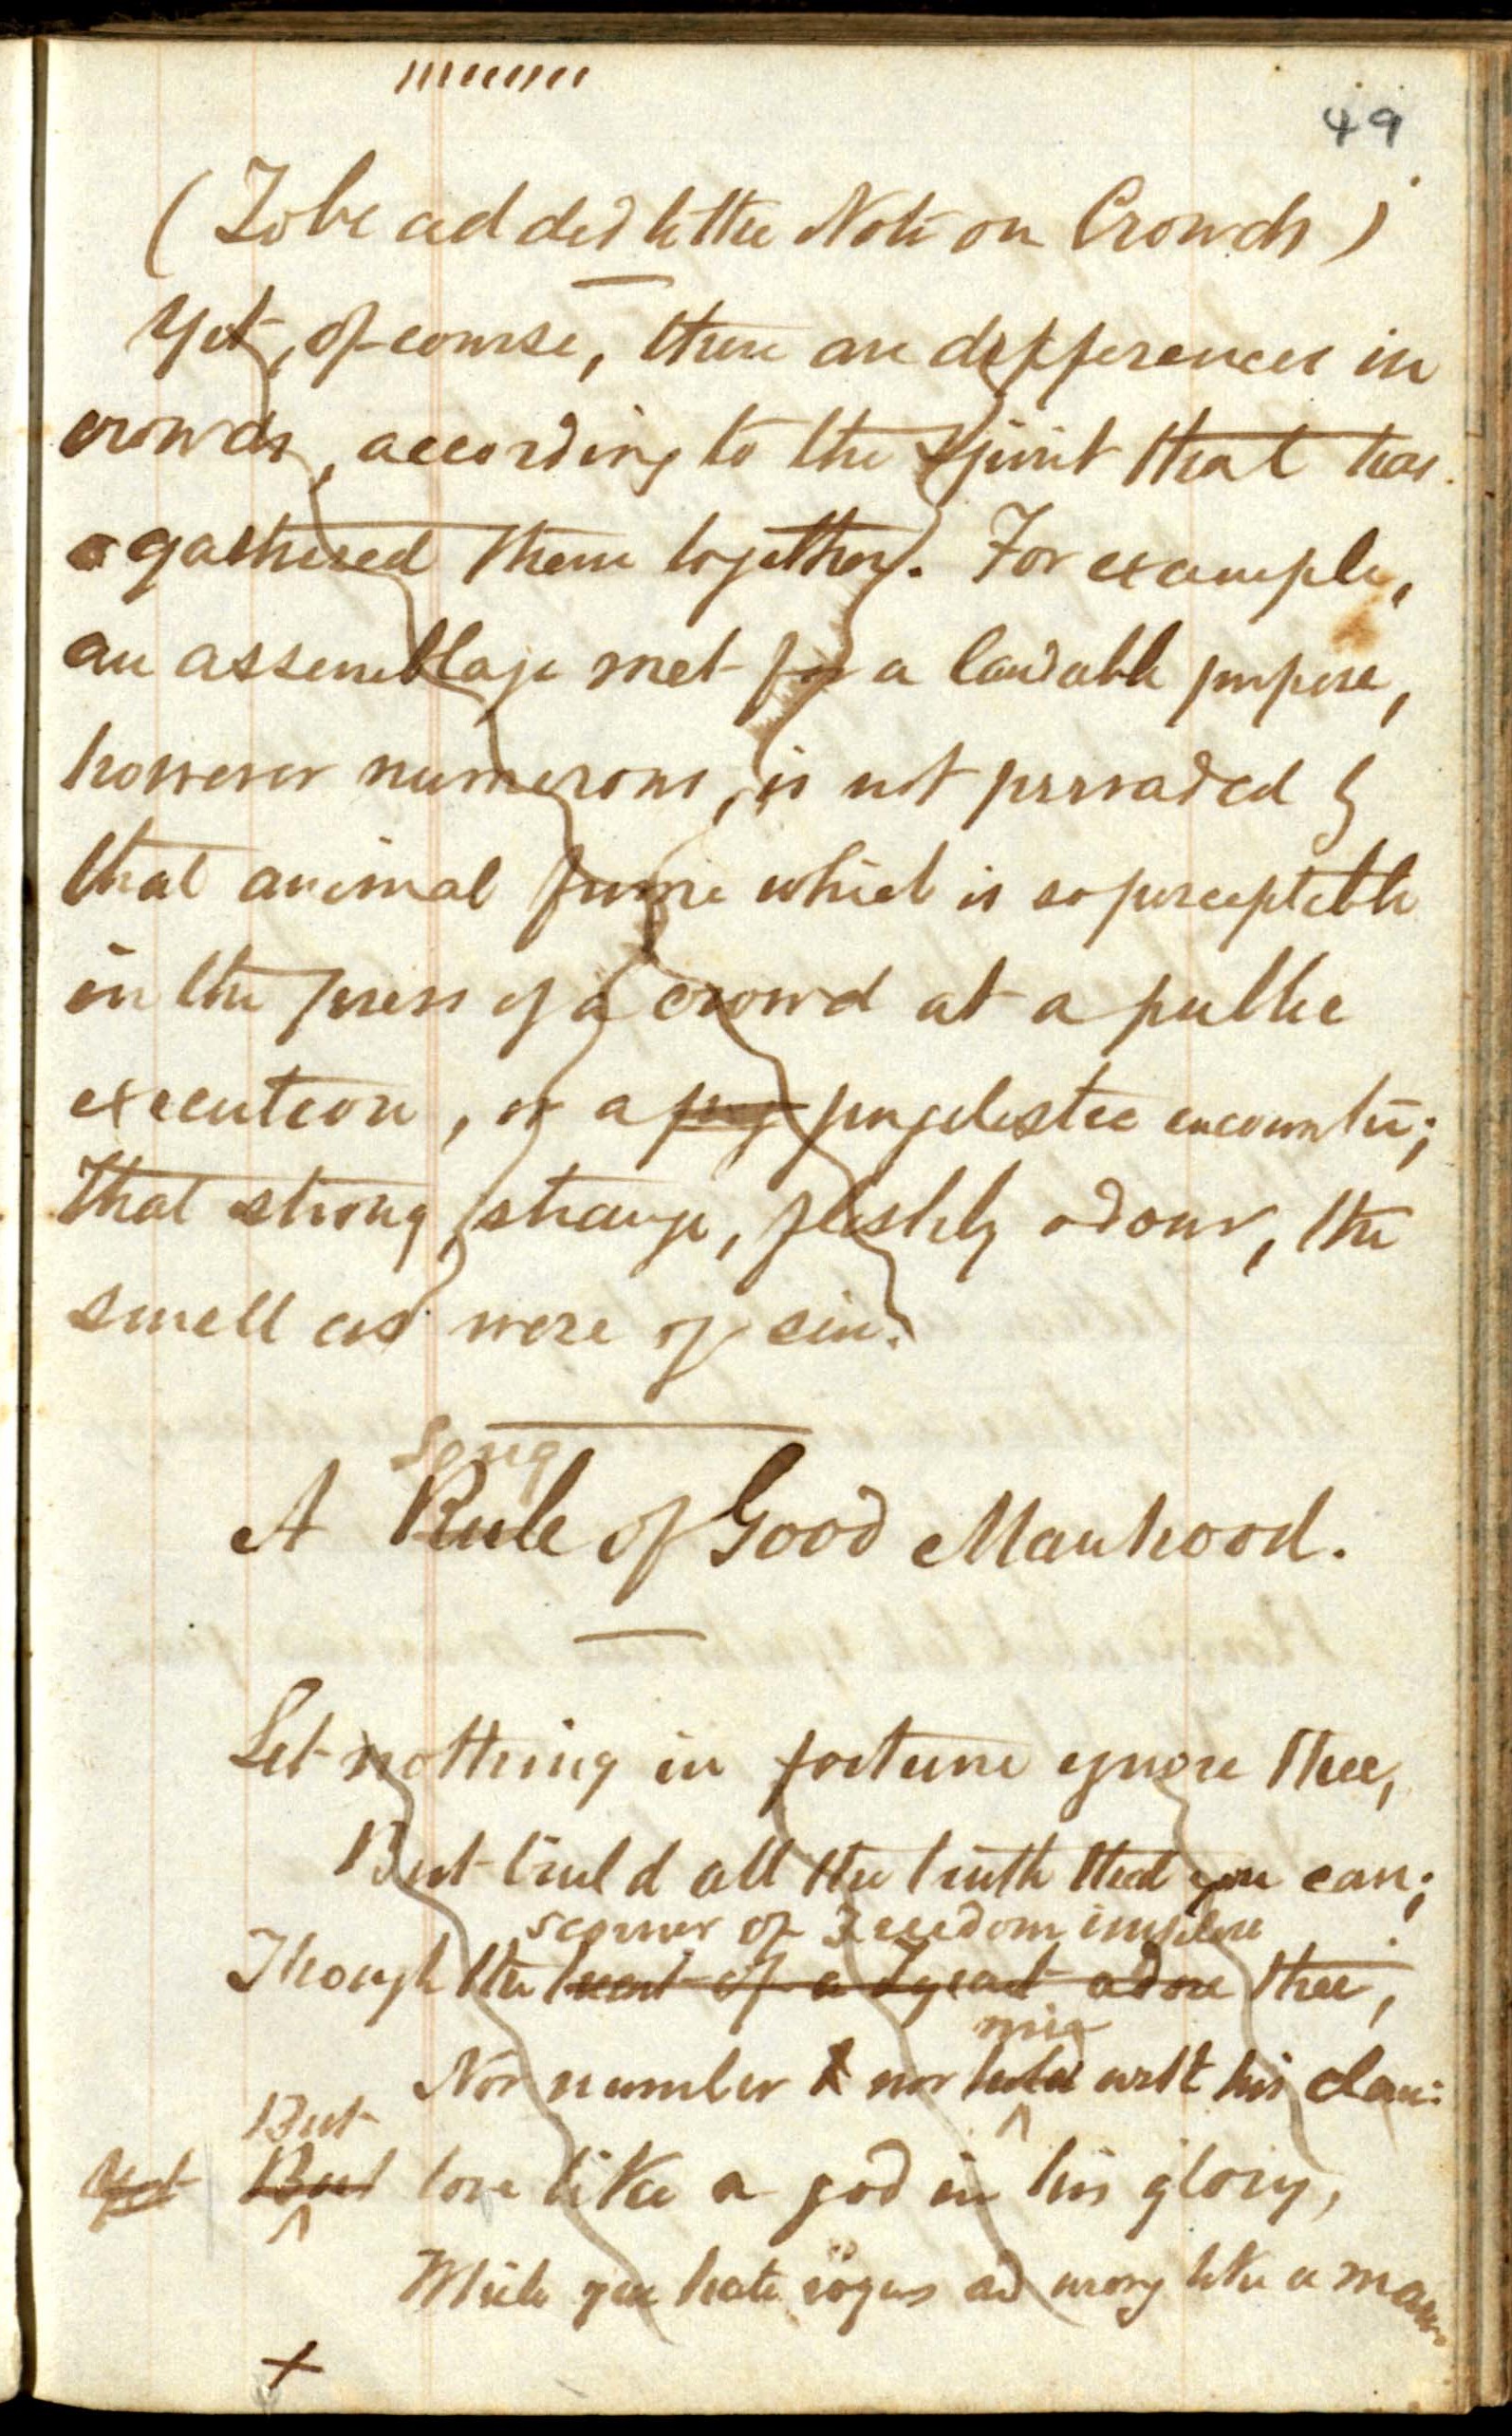 49
(To be added to the Note on Crowds)
Yet, of course, there are differences in
crowds, according to the spirit that has
gathered them together. For example,
an assemblage met for a laudable purpose,
however numerous, is not pervaded by
that animal fume which is so perceptible
in the press of a crowd at a public
execution, or a pug pugelistic encounter;
that strong, strange, fleshly odour, the
smell as were of sin.
Song
A Rule of Good Manhood.
Let nothing in fortune ignore thee,
But build all the truth that you can;
scorner of Freedom implore
Though the heart of a Tyrant adore thee,
mix
Nor number nor with his clan:
But
Yet But love like a god in his glory,
While you hate rogues and wrong like a man.